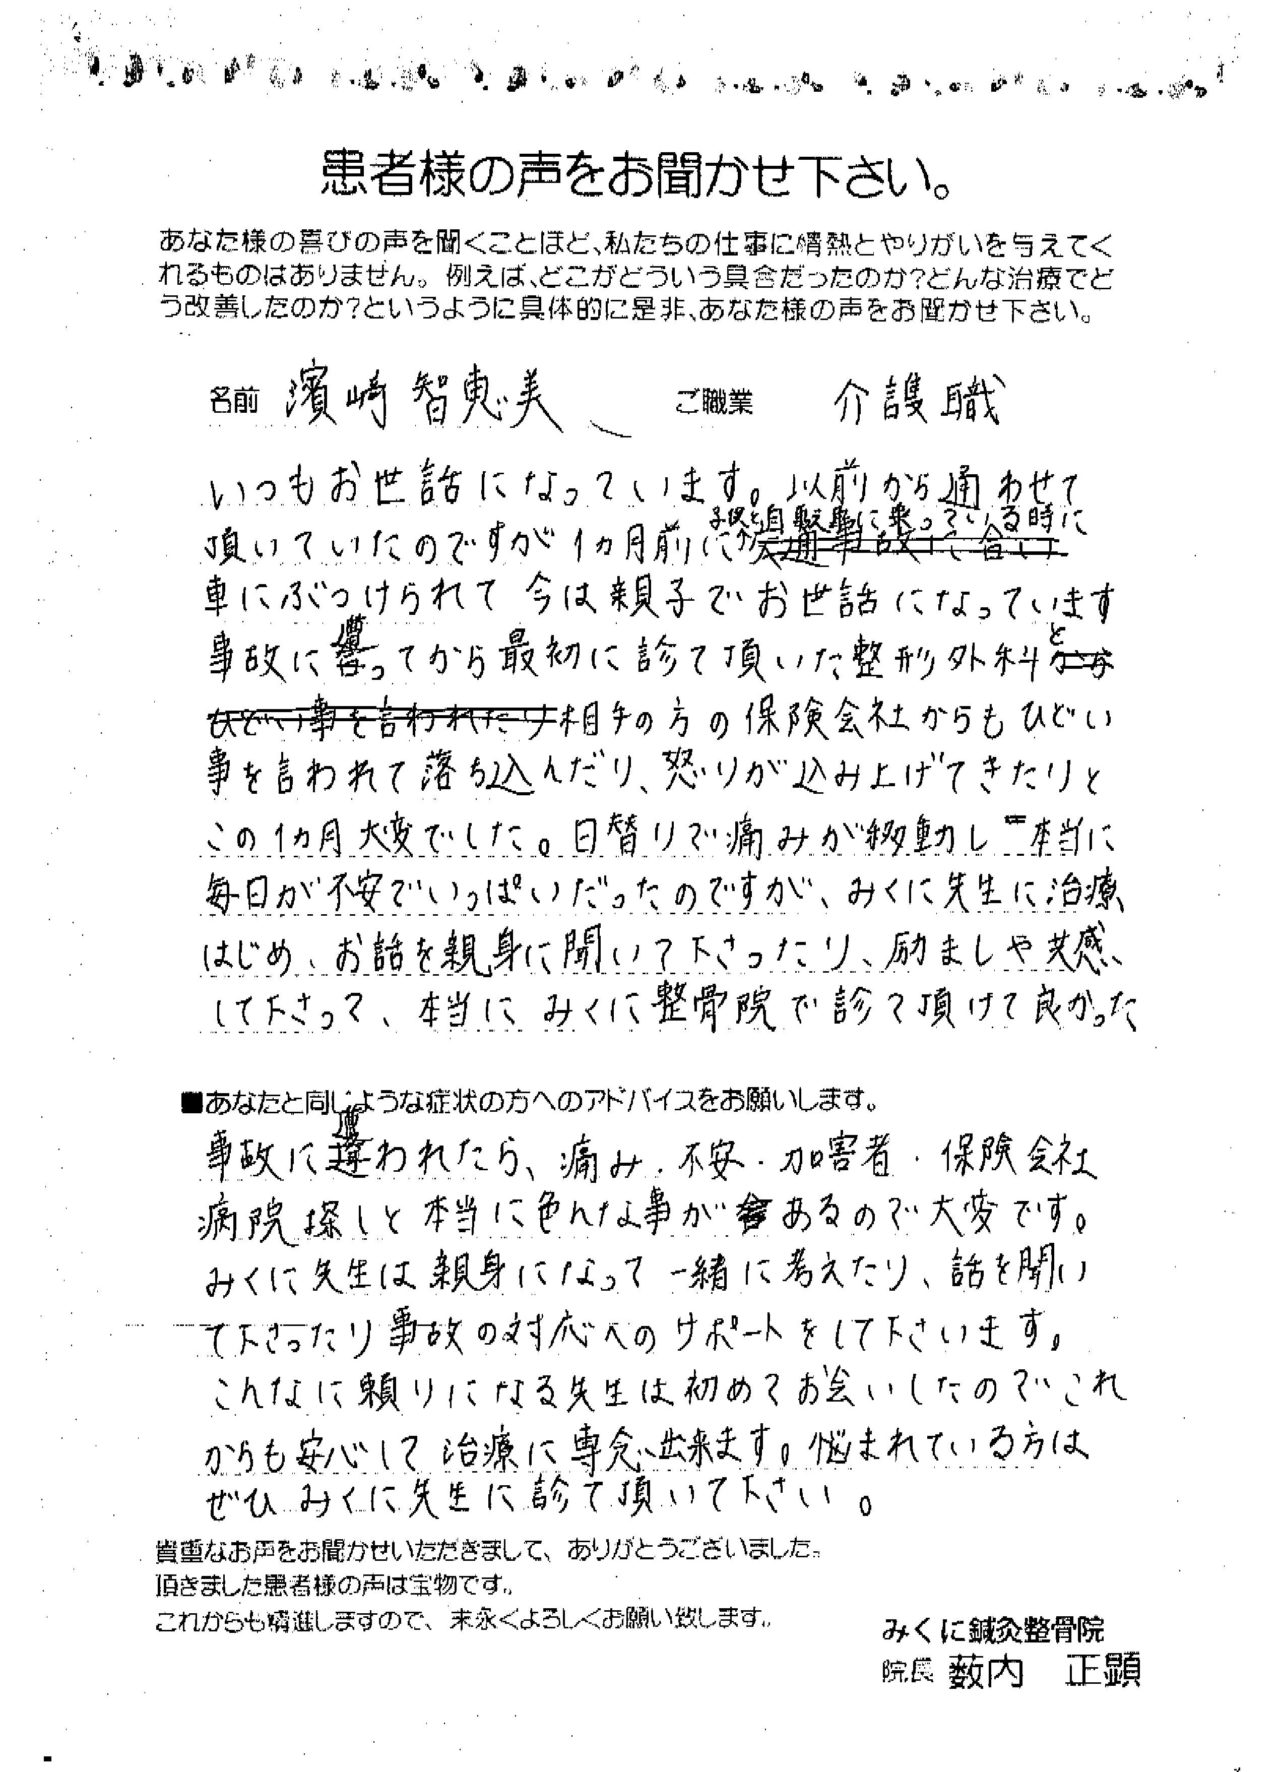 患者様の声をお聞かせ下さい。
あなた様の喜びの声を聞くことほど、私たちの仕事に情熱とやりがいを与えてく
れるものはありません。例えば、どこがどういう具合だったのか?どんな治療でど
う改善したのか?というように具体的に是非、あなた様の声をお聞かせ下さい。
名前 濱﨑 智恵美 ご職業 介護職
いつもお世話になっています。以前から通わせて
子供と自転車に乗っている時に
頂いていたのですが1カ月前に交通事故に合い
車にぶつけられて今は親子でお世話になっています
事故に遭ってから最初に診て頂いた整形外科と
ひどい事を言われたり相手の方の保険会社からもひどい
事を言われて落ち込んだり、怒りが込み上げてきたりと
この1カ月大変でした。日替りで痛みが移動し本当に
毎日が不安でいっぱいだったのですが、みくに先生に治療
はじめ、お話を親身に聞いて下さったり、励ましや共感、
して下さって、本当に みくに整骨院で診て頂けて良かった
■あなたと同じような症状の方へのアドバイスをお願いします。
事故に遭われたら、痛み・不安・加害者・保険会社
病院探しと本当に色んな事があるので大変です。
みくに先生は親身になって一緒に考えたり、話を聞い
て下さったり事故の対応へのサポートをして下さいます。
こんなに頼りになる先生は初めてお会いしたのでこれ
からも安心して治療に専念出来ます。悩まれている方は
ぜひみくに先生に診て頂いて下さい。
貴重なお声をお聞かせいただきまして、ありがとうございました。
頂きました患者様の声は宝物です。
これからも精進しますので、末永くよろしくお願い致します。
みくに鍼灸整骨院
院長 薮内 正顕